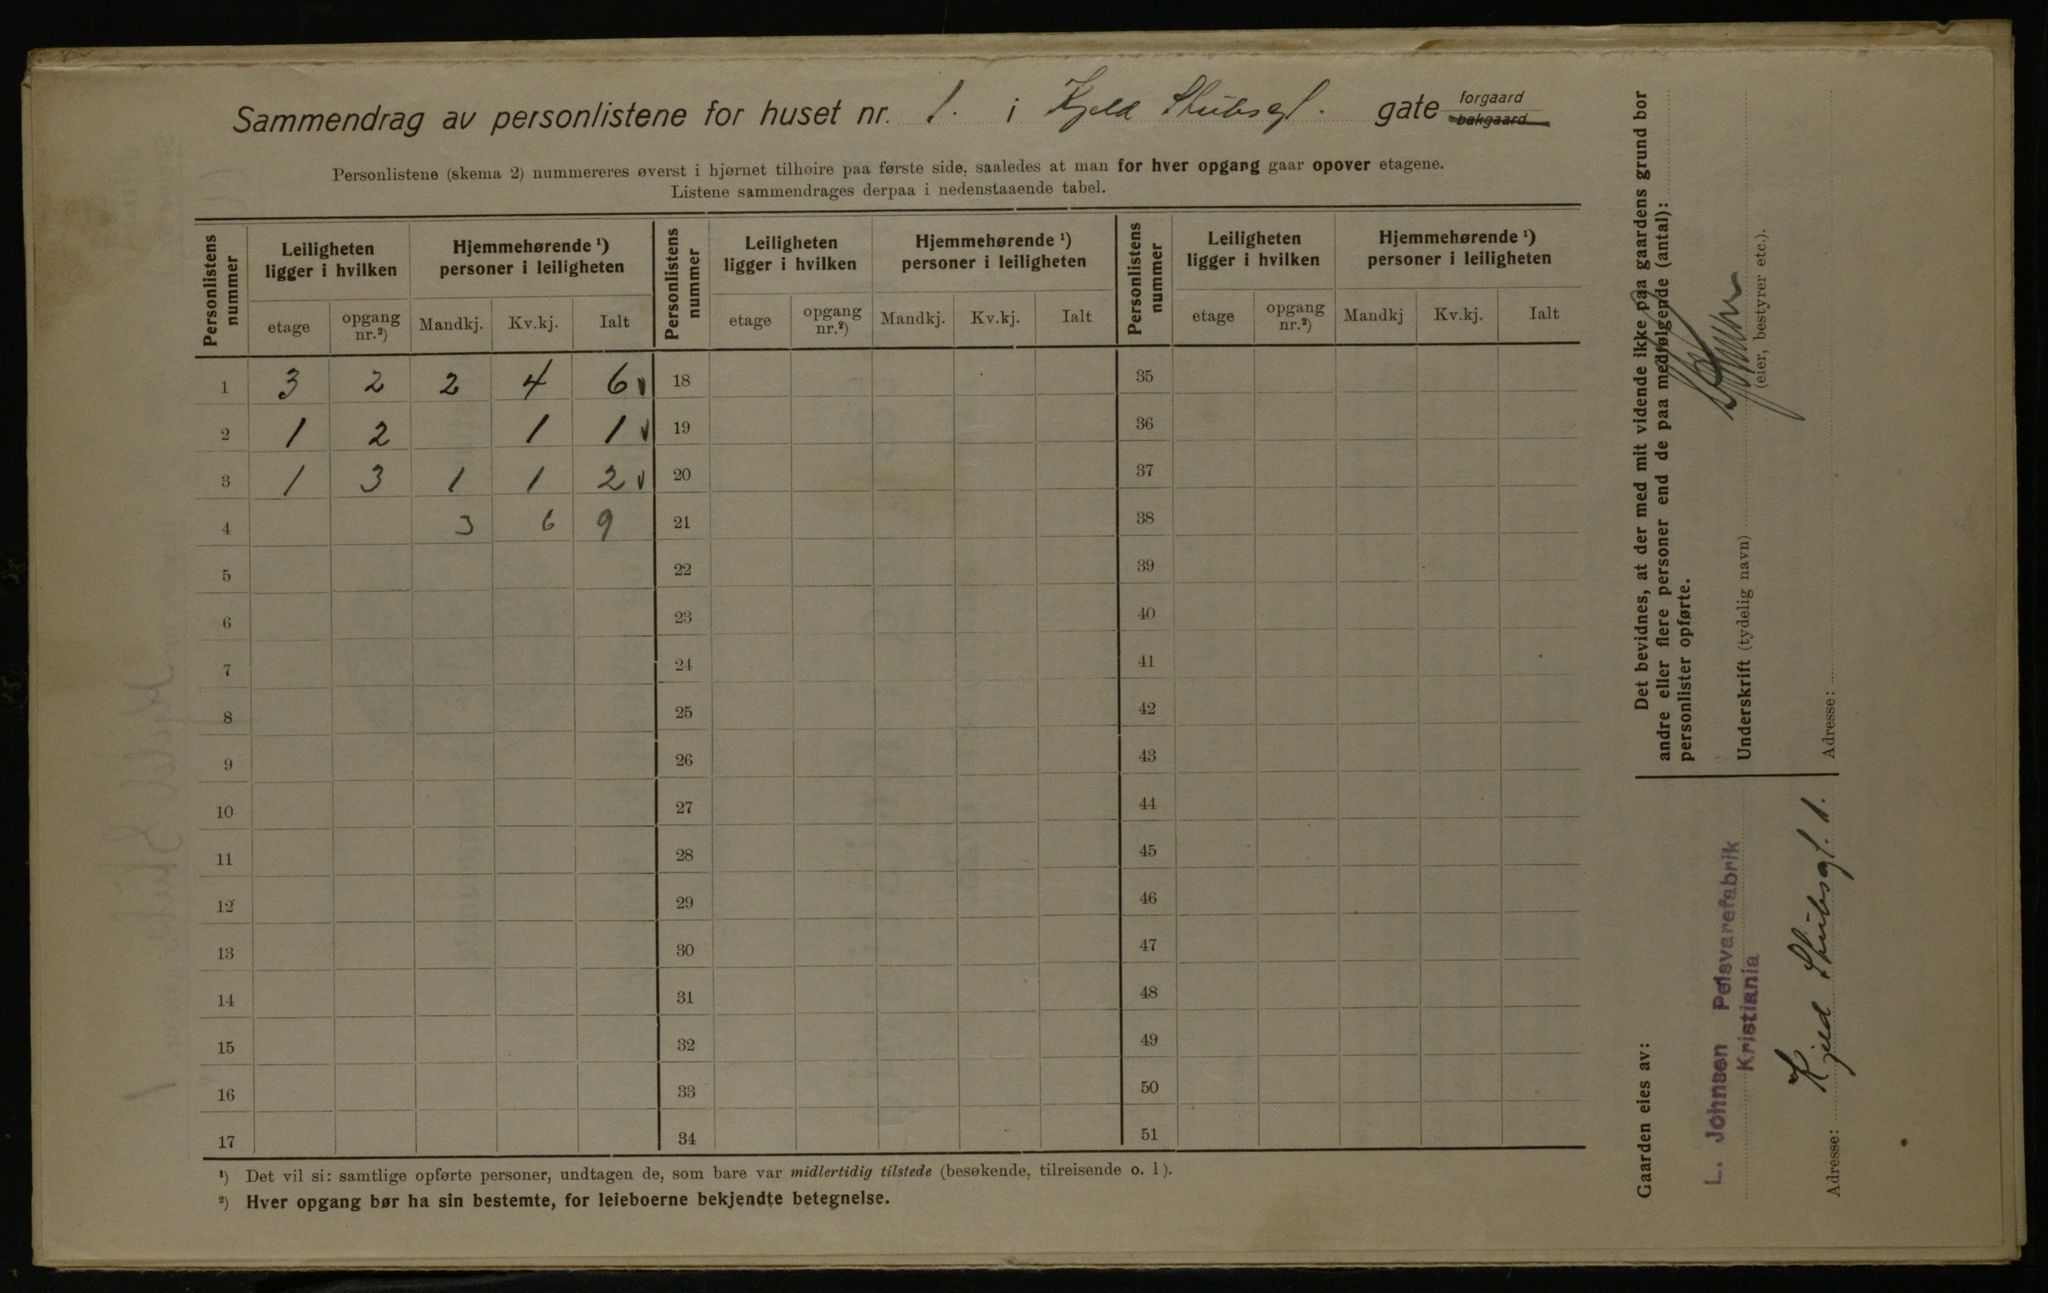 Sammendrag av personlistene for huset nr. 1. i Kjeld Stubsgt. gate forgaard bakgaard
Personlistene (skema 2) nummereres øverst i hjørnet tilhøire paa første side, saaledes at man for hver opgang gaar opover etagene.
Listene sammendrages derpaa i nedenstaaende tabel.
Personlistens nummer | Leiligheten ligger i hvilken | Hjemmehørende ¹) personer i leiligheten | Personlistens nummer | Leiligheten ligger i hvilken | Hjemmehørende ¹) personer i leiligheten | Personlistens nummer | Leiligheten ligger i hvilken | Hjemmehørende ¹) personer i leiligheten
etage | opgang nr.²) | Mandkj. | Kv.kj. | Ialt | etage | opgang nr.²) | Mandkj. | Kv.kj. | Ialt | etage | opgang nr.²) | Mandkj | Kv.kj. | Ialt
1 3 2 2 4 6 18 35
2 1 2 1 1 19 36
3 1 3 1 1 2 20 37
4 3 6 9 21 38
5 22 39
6 23 40
7 24 41
8 25 42
9 26 43
10 27 44
11 28 45
12 29 46
13 30 47
14 31 48
15 32 49
16 33 50
17 34 51
¹) Det vil si: samtlige opførte personer, undtagen de, som bare var midlertidig tilstede (besøkende, tilreisende o. l).
²) Hver opgang bør ha sin bestemte, for leieboerne bekjendte betegnelse.
Det bevidnes, at der med mit vidende ikke paa gaardens grund bor
andre eller flere personer end de paa medfølgende (antal):
personlister opførte.
Underskrift (tydelig navn)
(eier, bestyrer etc.).
Adresse:
Gaarden eies av:
L. Johnsen Pelsvarefabrik
Kristiania
Adresse: Kjeld Stubsgt. 1.